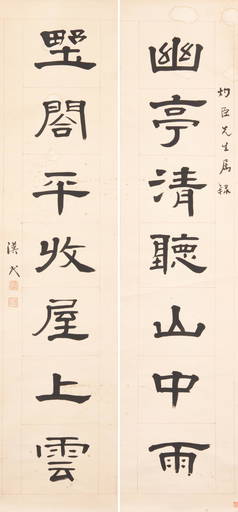 灼臣先生属隸
幽亭清聽山中雨
墅閣平收屋上雲
漢民